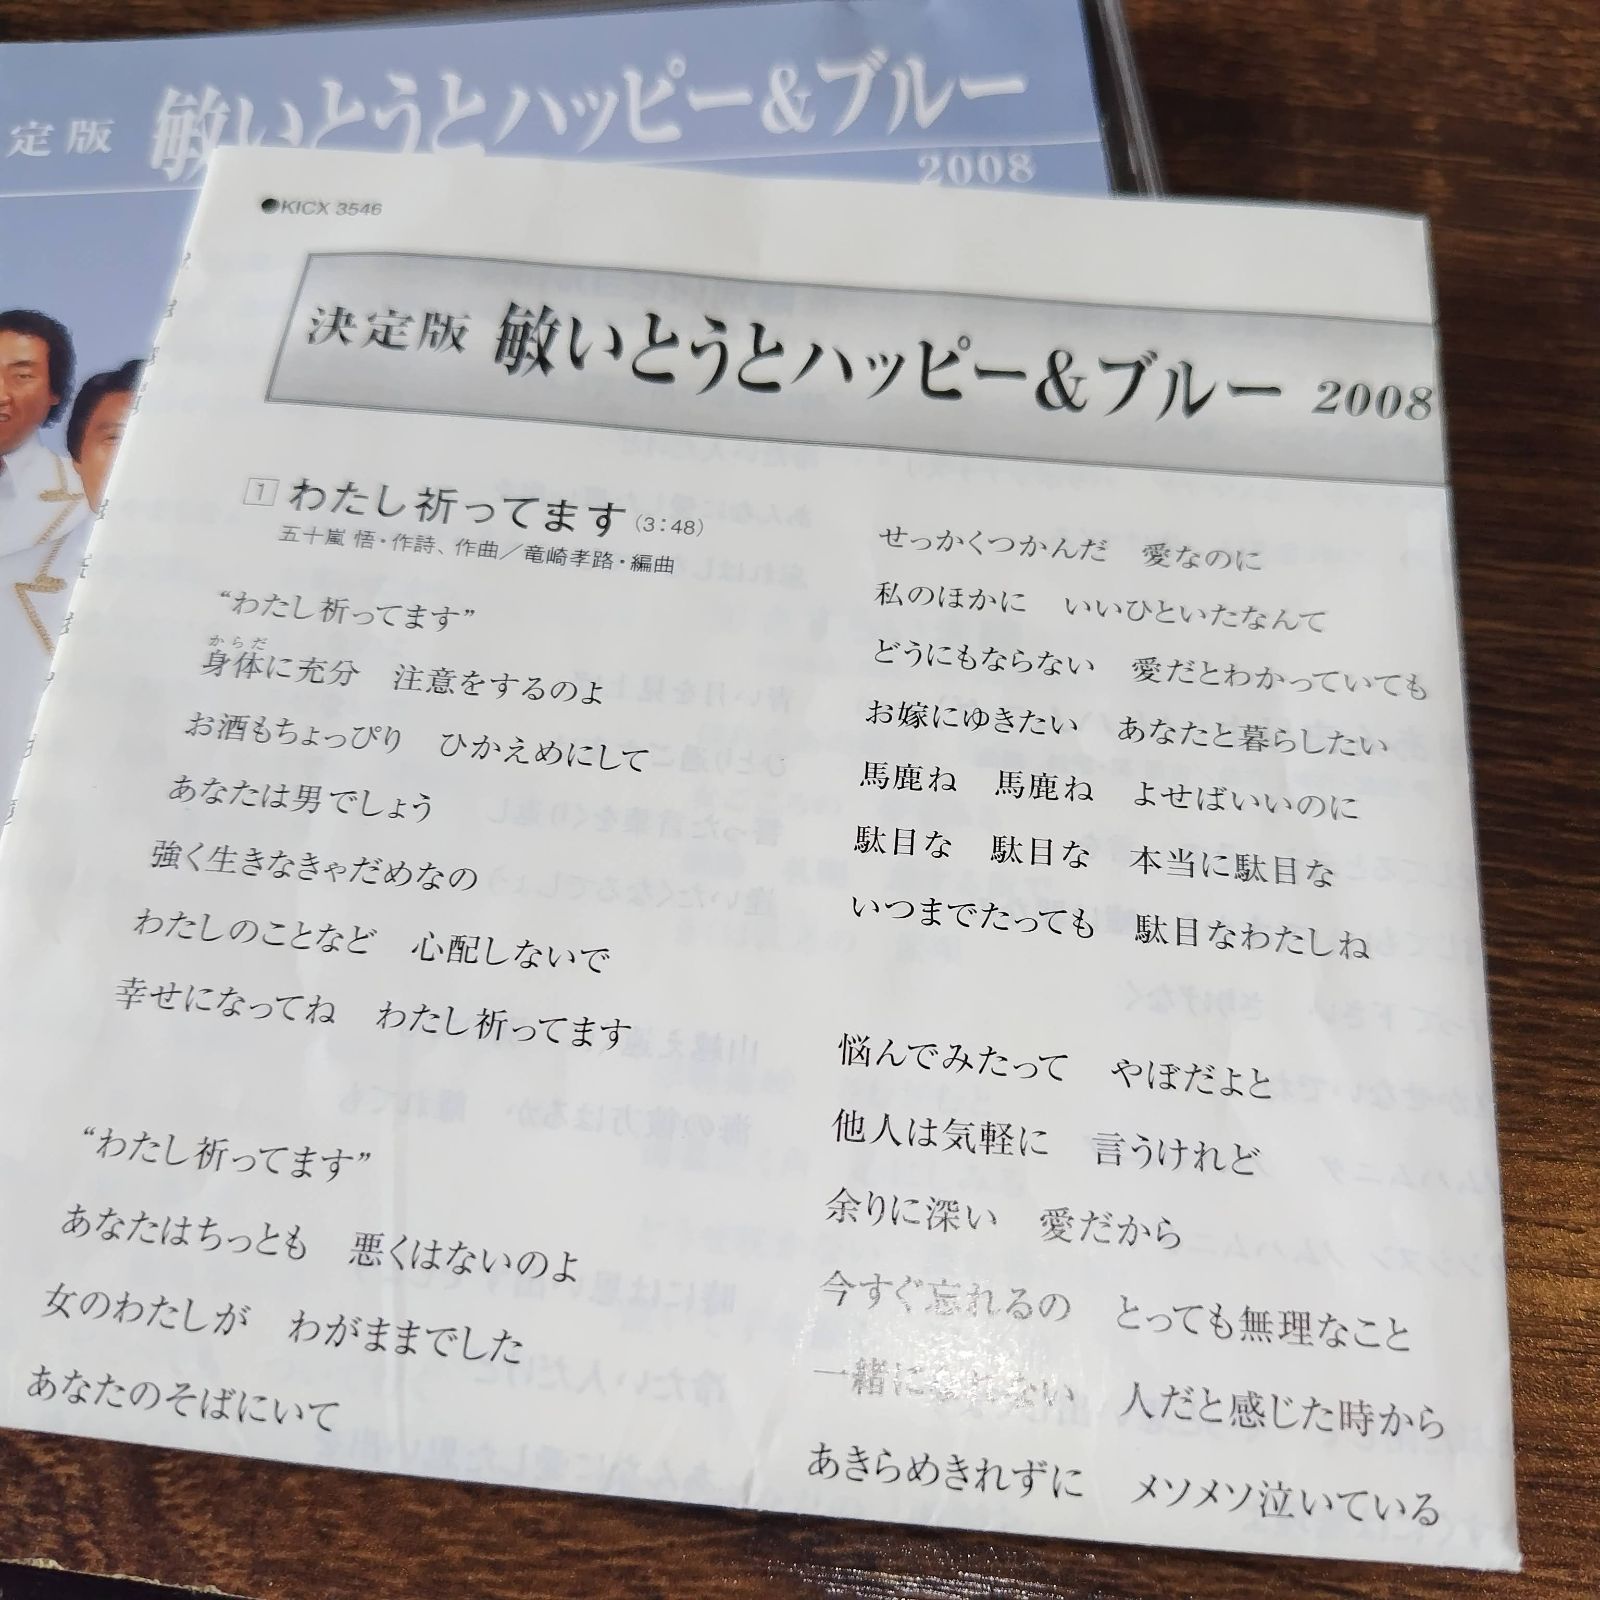 定版 敏いとうとハッピー&ブルー
2008
●KICX 3546
決定版 敏いとうとハッピー&ブルー 2008
1 わたし祈ってます (3:48)
五十嵐 悟・作詩、作曲/竜崎孝路・編曲
“わたし祈ってます”
からだ
身体に充分 注意をするのよ
お酒もちょっぴり ひかえめにして
あなたは男でしょう
強く生きなきゃだめなの
わたしのことなど 心配しないで
幸せになってね わたし祈ってます
“わたし祈ってます”
あなたはちっとも 悪くはないのよ
女のわたしが わがままでした
あなたのそばにいて
せっかくつかんだ 愛なのに
私のほかに いいひといたなんて
どうにもならない 愛だとわかっていても
お嫁にゆきたい あなたと暮らしたい
馬鹿ね 馬鹿ね よせばいいのに
駄目な 駄目な 本当に駄目な
いつまでたっても 駄目なわたしね
悩んでみたって やぼだよと
他人は気軽に 言うけれど
余りに深い 愛だから
今すぐ忘れるの とっても無理なこと
一緒になれない 人だと感じた時から
あきらめきれずに メソメソ泣いている